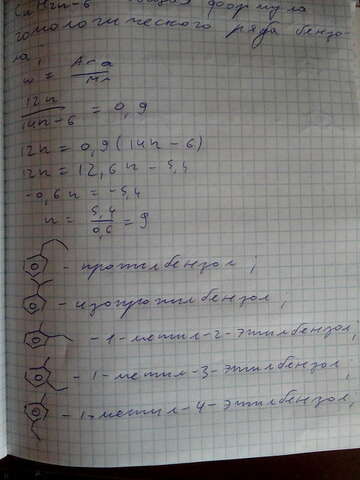 CnH2n-6 общая формула
гомологического ряда бензо-
ла;
w = Ar·a / Mr
12n / 14n-6 = 0,9
12n = 0,9(14n-6)
12n = 12,6n - 5,4
-0,6n = -5,4
n = 5,4 / 0,6 = 9
- пропилбензол;
- изопропилбензол;
- 1-метил-2-этилбензол;
- 1-метил-3-этилбензол,
- 1-метил-4-этилбензол,